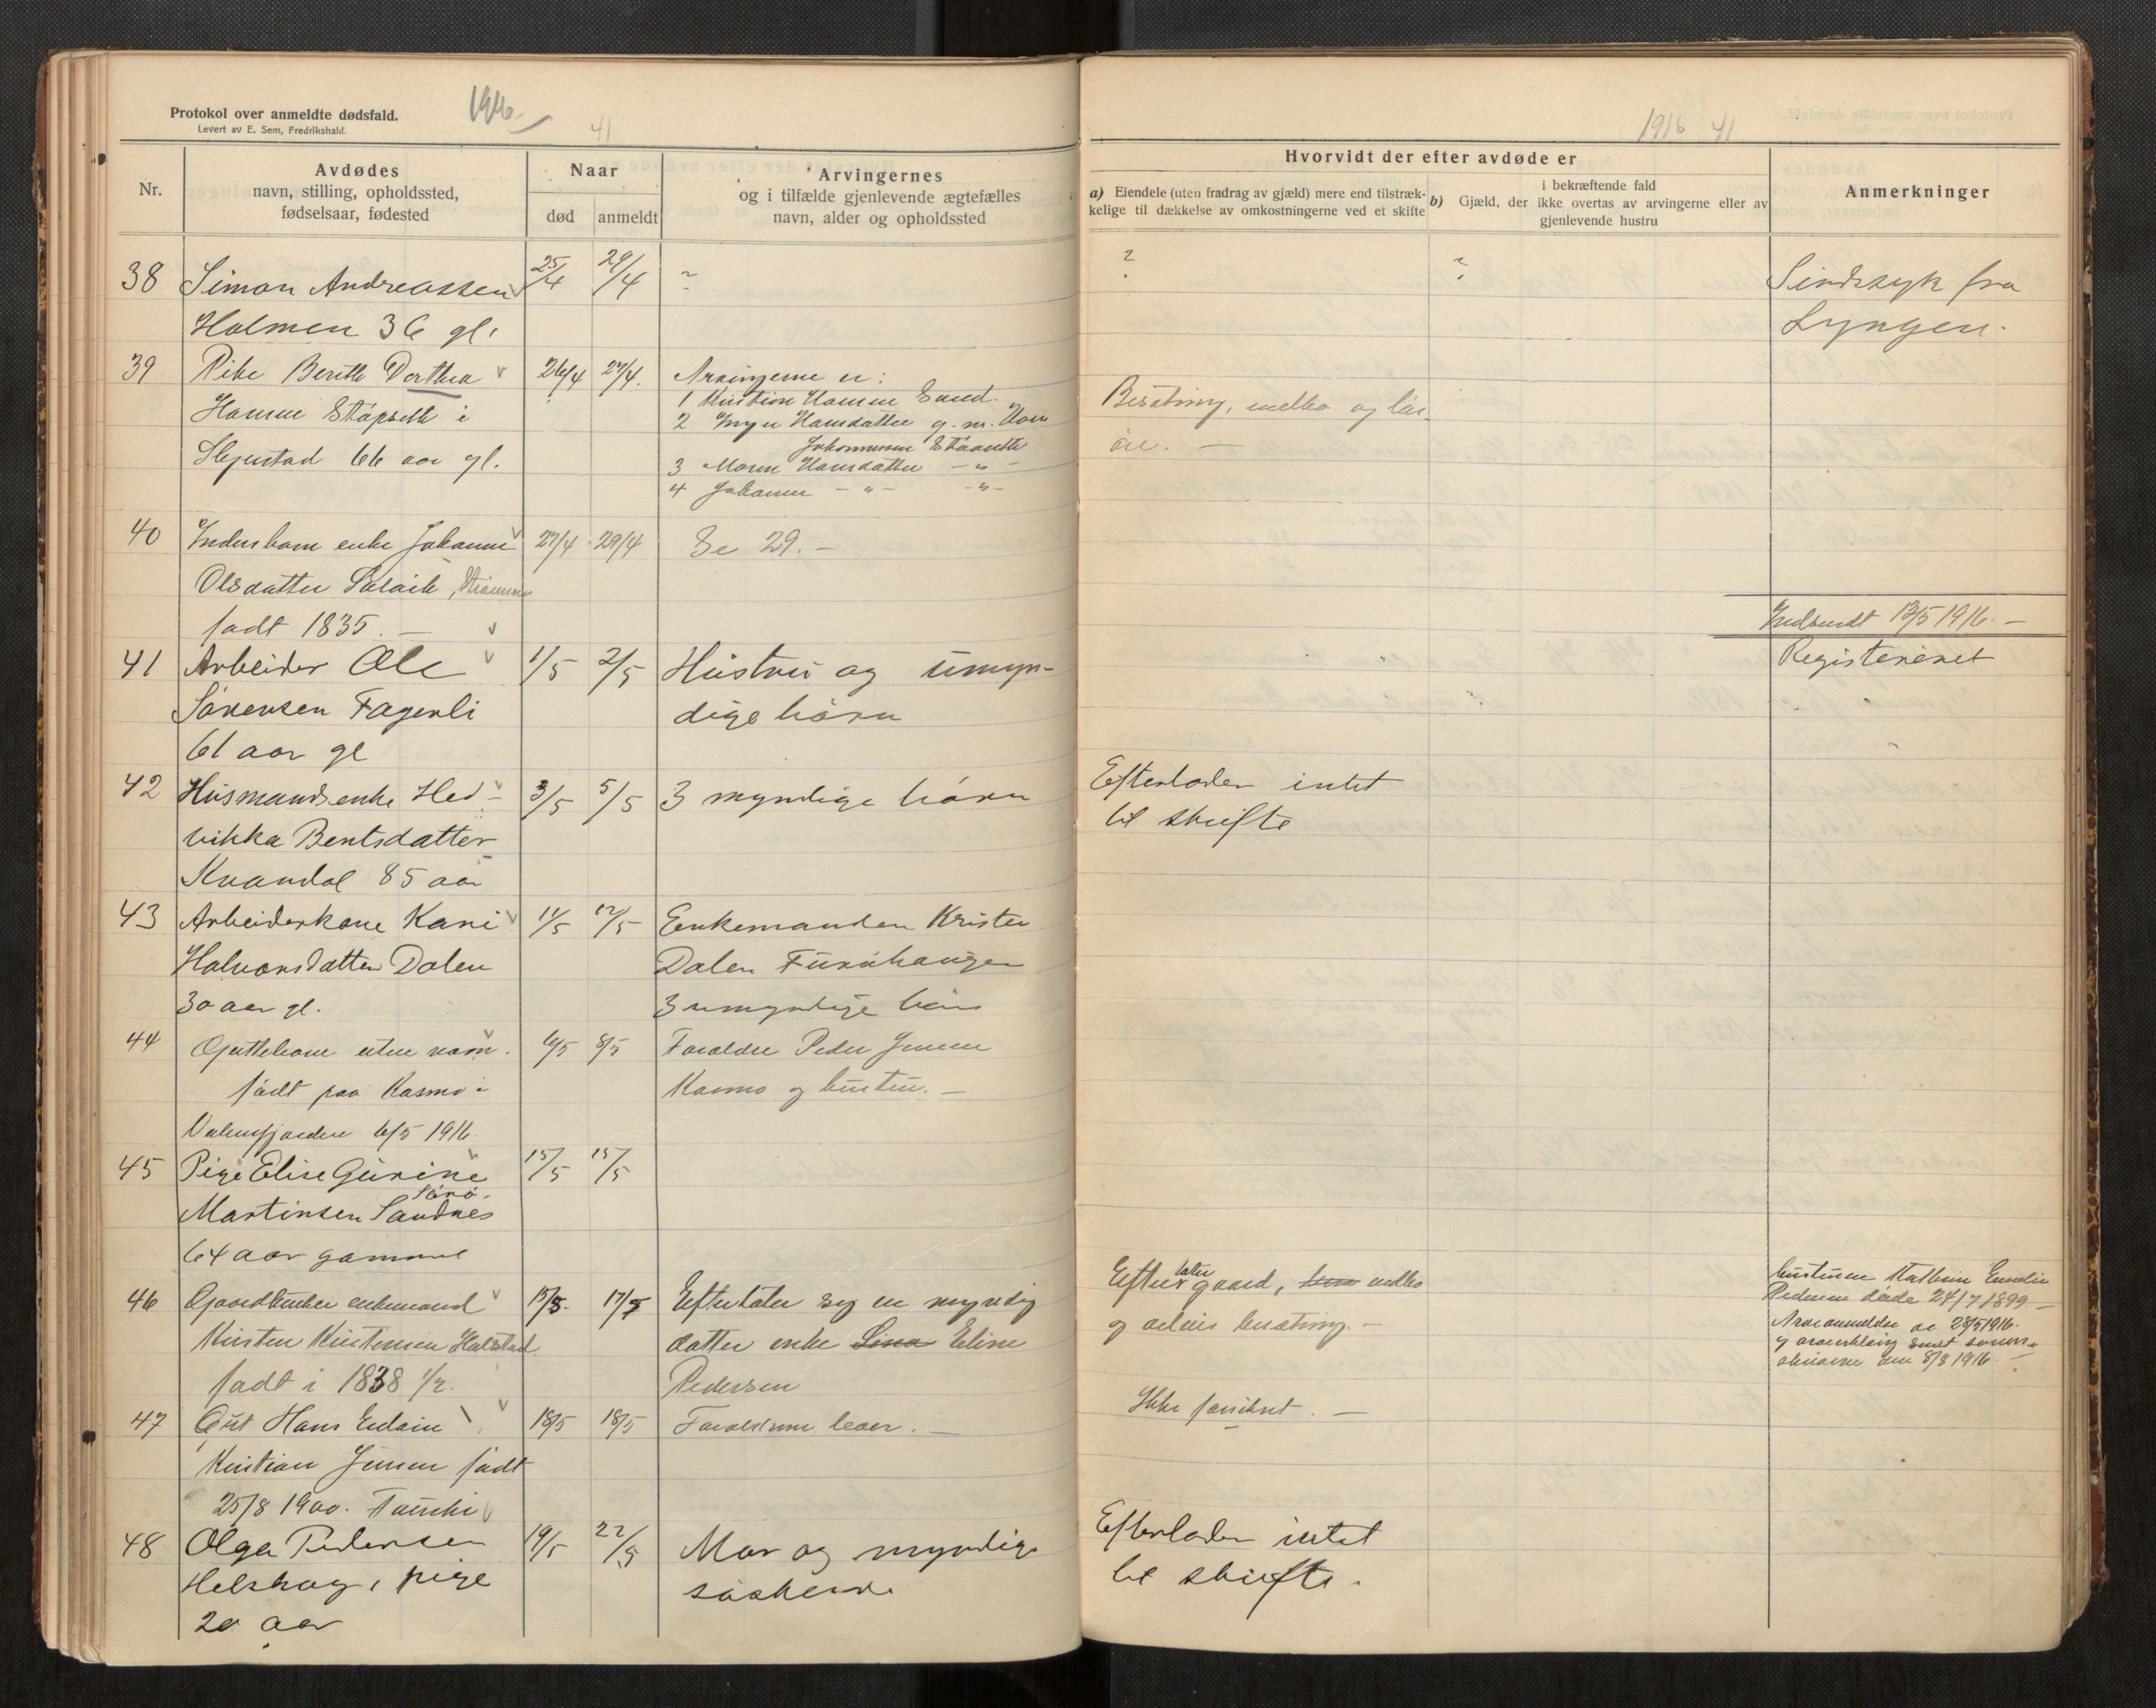 Protokol over anmeldte dødsfald.
Levert av E. Sem, Fredrikshald.
1916
41
Nr.
Avdødes
navn, stilling, opholdssted,
fødselsaar, fødested
Naar
død
anmeldt
Arvingernes
og i tilfælde gjenlevende ægtefælles
navn, alder og opholdssted
38 Simon Andreassen 25/4 29/4 ?
Holmen 36 gl.
39 Pike Berith Dorthea 26/4 27/4. Arvingerne er:
Hansen i
66 aar gl.
1 Kristian Hansen Sund.
2 Inger Hansdatter g. m.
Johannesen
3 Maren Hansdatter — " —
4 Johanne — " — — " —
40 enke Johanne 27/4 29/4 Se 29. —
Olsdatter
født 1835. —
41 Arbeider Ole 1/5 2/5 Hustru og umyn-
Sörensen Fagerli dige börn
61 aar gl
42 Husmandsenke Hed- 3/5 5/5 3 myndige börn
vikka Bentsdatter
Kvandal 85 aar
43 Arbeiderkone Kari 11/5 12/5 Enkemanden Krister
Halvorsdatter Dalen Dalen Furuhaugen
30 aar gl. 3 umyndige börn
44 Guttebarn uten navn. 6/5 8/5 Forældre Peder Jensen
født paa Kosmo i Kosmo og hustru. —
Valnesfjorden 6/5 1916.
45 Pige Elise Gurine 15/5 15/5
Sörö.
Martinsen Sandnes
64 aar gammel
46 Gaardbruker enkemand 15/5. 17/5 Efterlater sig en myndig
Kristen Kristensen Halstad datter enke Lina Eline
født i 1838 1/2. Pedersen
47 Gut Hans Edvin 18/5 18/5 Forældrene lever. —
Kristian Jensen født
25/8 1900. Fauske
48 Olga Pedersen 19/5 22/5 Mor og myndige
Helskog, pige söskende
20 aar
1916 41
Hvorvidt der efter avdøde er
a) Eiendele (uten fradrag av gjæld) mere end tilstræk-
kelige til dækkelse av omkostningerne ved et skifte
b)
i bekræftende fald
Gjæld, der ikke overtas av arvingerne eller av
gjenlevende hustru
Anmerkninger
? ? Sindssyk fra
Lyngen.
Besætning, indbo og lös-
öre. —
Indsendt 13/5 1916. —
Registreret
Efterlader intet
til skifte
Efterlater gaard, indbo
og besætning. —
hustruen Emelie
Pedersen døde 24/7 1899. —
28/5 1916.
8/8 1916. —
Ikke formuet. —
Efterlader intet
til skifte.